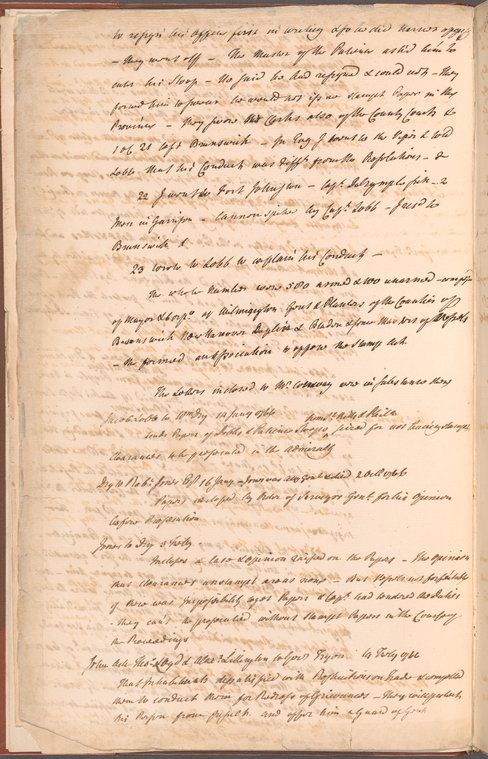 to resign his Office first in writing & so he did
- they went off - The Master of the asked him to
enter his Sloop - He said he had resigned & could not - they
forced him to swear he would not issue stampt Paper in the
Province - They swore the Clerks also of the County Courts &
1 of 21 left Brunswick - In Eveg I went to the Viper & told
Lobb that his Conduct was difft. from the Resolutions - &
22 I went to Fort Johnston - Capt. Dalrymple fm - 2
men in Garrison - Cannon spiked by Capt. Lobb - I retd to
Brunswick &
23 wrote to Lobb to explain his Conduct -
The whole number were 580 armed & 100 unarmed -
of Mayor & Corpn. of Wilmington Gent & Planters of the Counties of
Brunswick New Hanover Duplin & Bladen & some Masters of Vessels
- the formed an association to oppose the Stamp Act
The Letters inclosed to Mr. Conway are in substance these
Jacob Lobb to Wm Dry 14 Jany 1766
sends Papers of Dobbs & Patience Sloops, seized for not having stampt
Clearances to be prosecuted in the Admiralty
Dry to Robt. Jones Esqr 16 Jany
Papers inclosed by Order of Surveyor Genl. for his Opinion
before Prosecution
Jones to Dry 3 Feby.
Incloses a Case & Opinion on the Papers - The Opinion
that Clearances unstampt are as none - that
of there was Impossibility to get Papers & Capt. had tendred the Duties
- they can't be prosecuted without Stampt Papers in the Course of
the Proceedings
John Ash Thos. Lloyd & Alexr. Lillington to Govr. Tryon 19 Feby 1766
That Inhabitants dissatisfied with Restrictions on Trade & compelled
them to conduct them for Redress of Grievances - They will protect
his Person from Insult and offer him a Guard of Gent